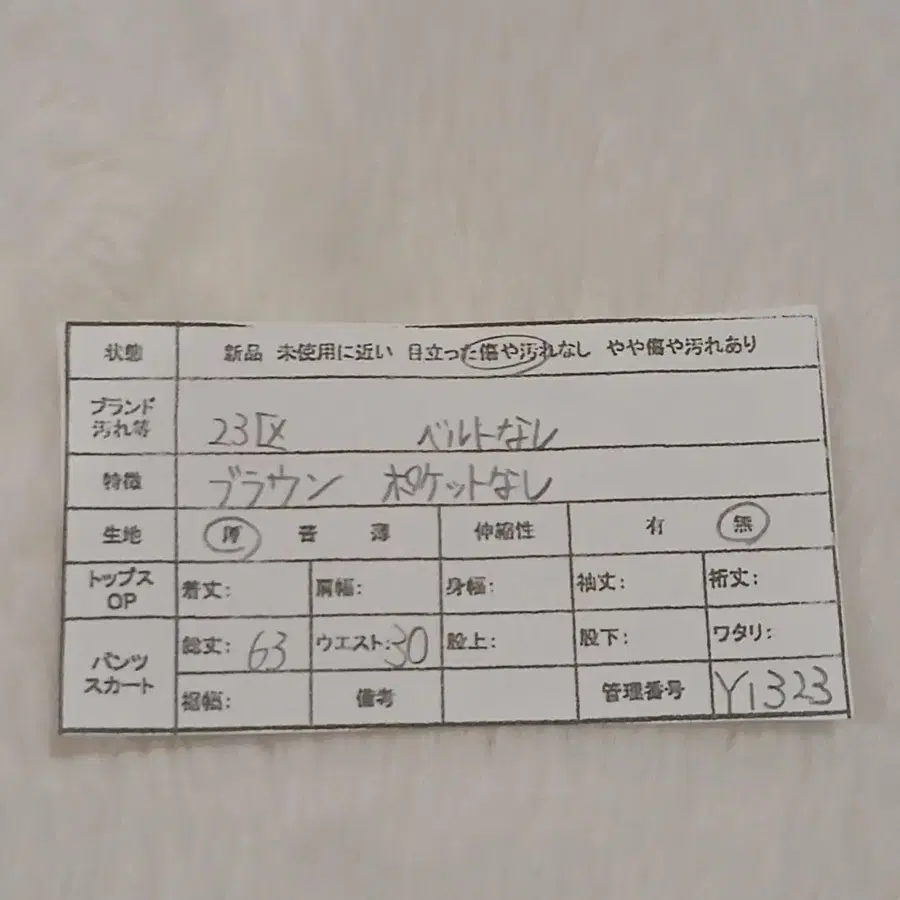 状態 新品 未使用に近い 目立った傷や汚れなし やや傷や汚れあり
ブランド
汚れ等 23区 ベルトなし
特徴 ブラウン ポケットなし
生地 厚 普 薄 伸縮性 有 無
トップス
OP 着丈: 肩幅: 身幅: 袖丈: 裄丈:
パンツ
スカート 総丈: 63 ウエスト: 30 股上: 股下: ワタリ:
裾幅: 備考 管理番号 Y1323